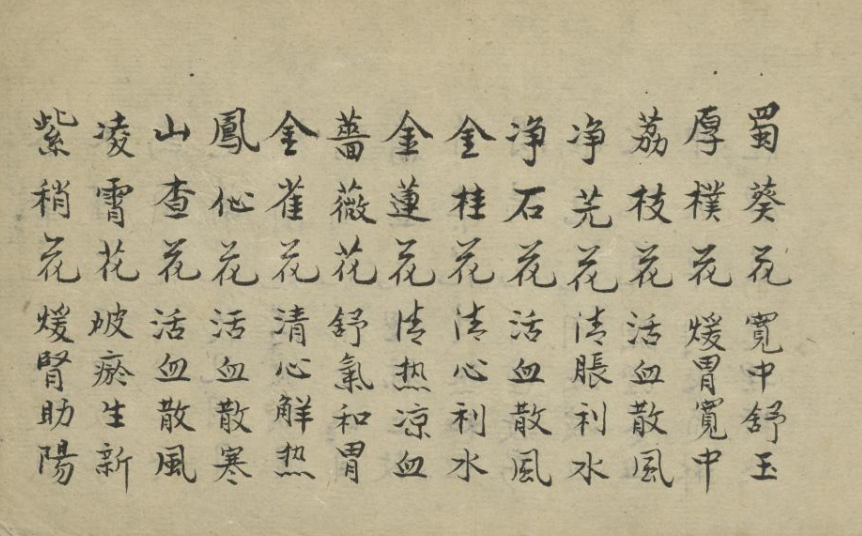 蜀葵花寬中舒玉
厚樸花煖胃寬中
荔枝花活血散風
净芫花清脹利水
净石花活血散風
金桂花清心利水
金蓮花清热凉血
薔薇花舒氣和胃
金雀花清心解热
鳳仙花活血散寒
山查花活血散風
凌霄花破瘀生新
紫稍花煖腎助陽